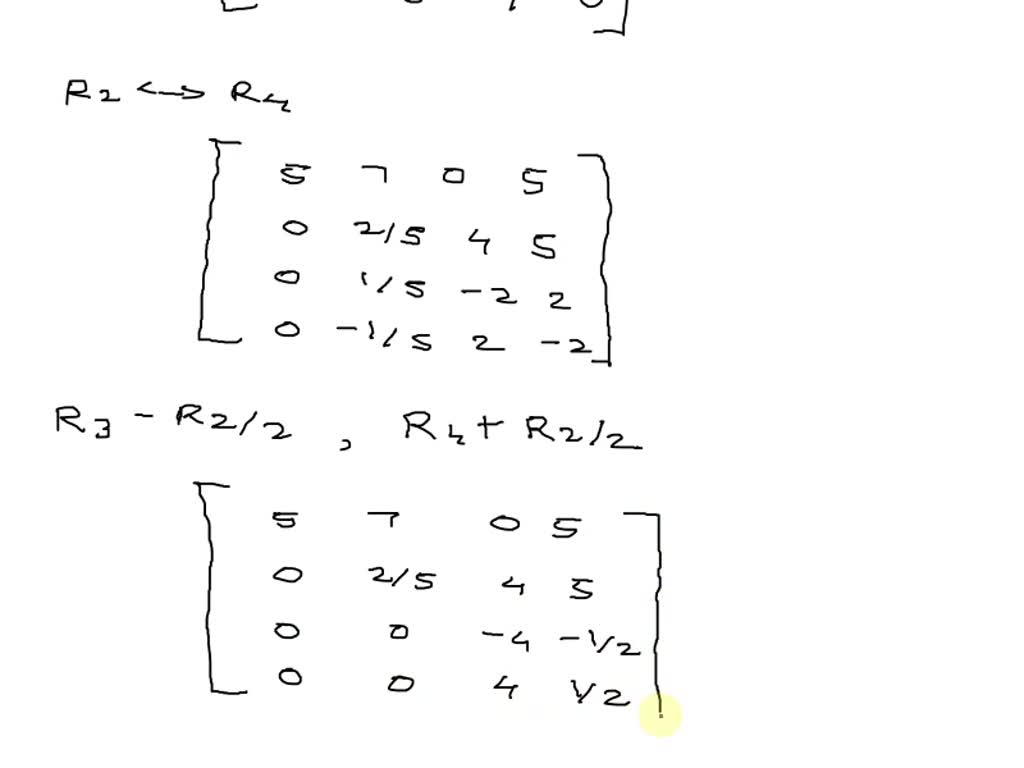 R2 ↔ R4
5 7 0 5
0 2/5 4 5
0 1/5 -2 2
0 -1/5 2 -2
R3 - R2/2 , R4 + R2/2
5 7 0 5
0 2/5 4 5
0 0 -4 -1/2
0 0 4 1/2